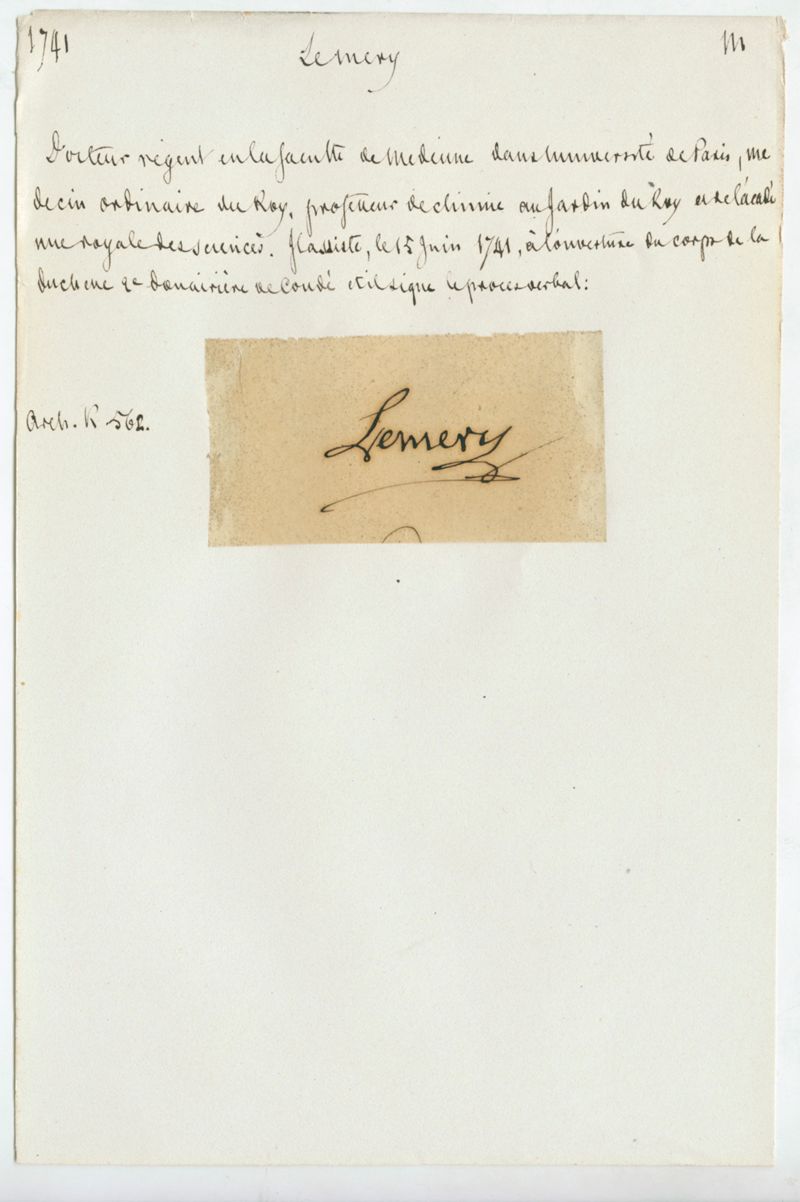 1741
Lemery
m
Docteur régent en la faculté de Medecine dans l'université de Paris, me
decin ordinaire du Roy, professeur de chimie au Jardin du Roy et de l'acadé
mie royale des sciences. Il assiste, le 15 Juin 1741, à l'ouverture du corps de la
duchesse douairière de Condé et il signe le procès verbal:
Arch. K 562.
Lemery